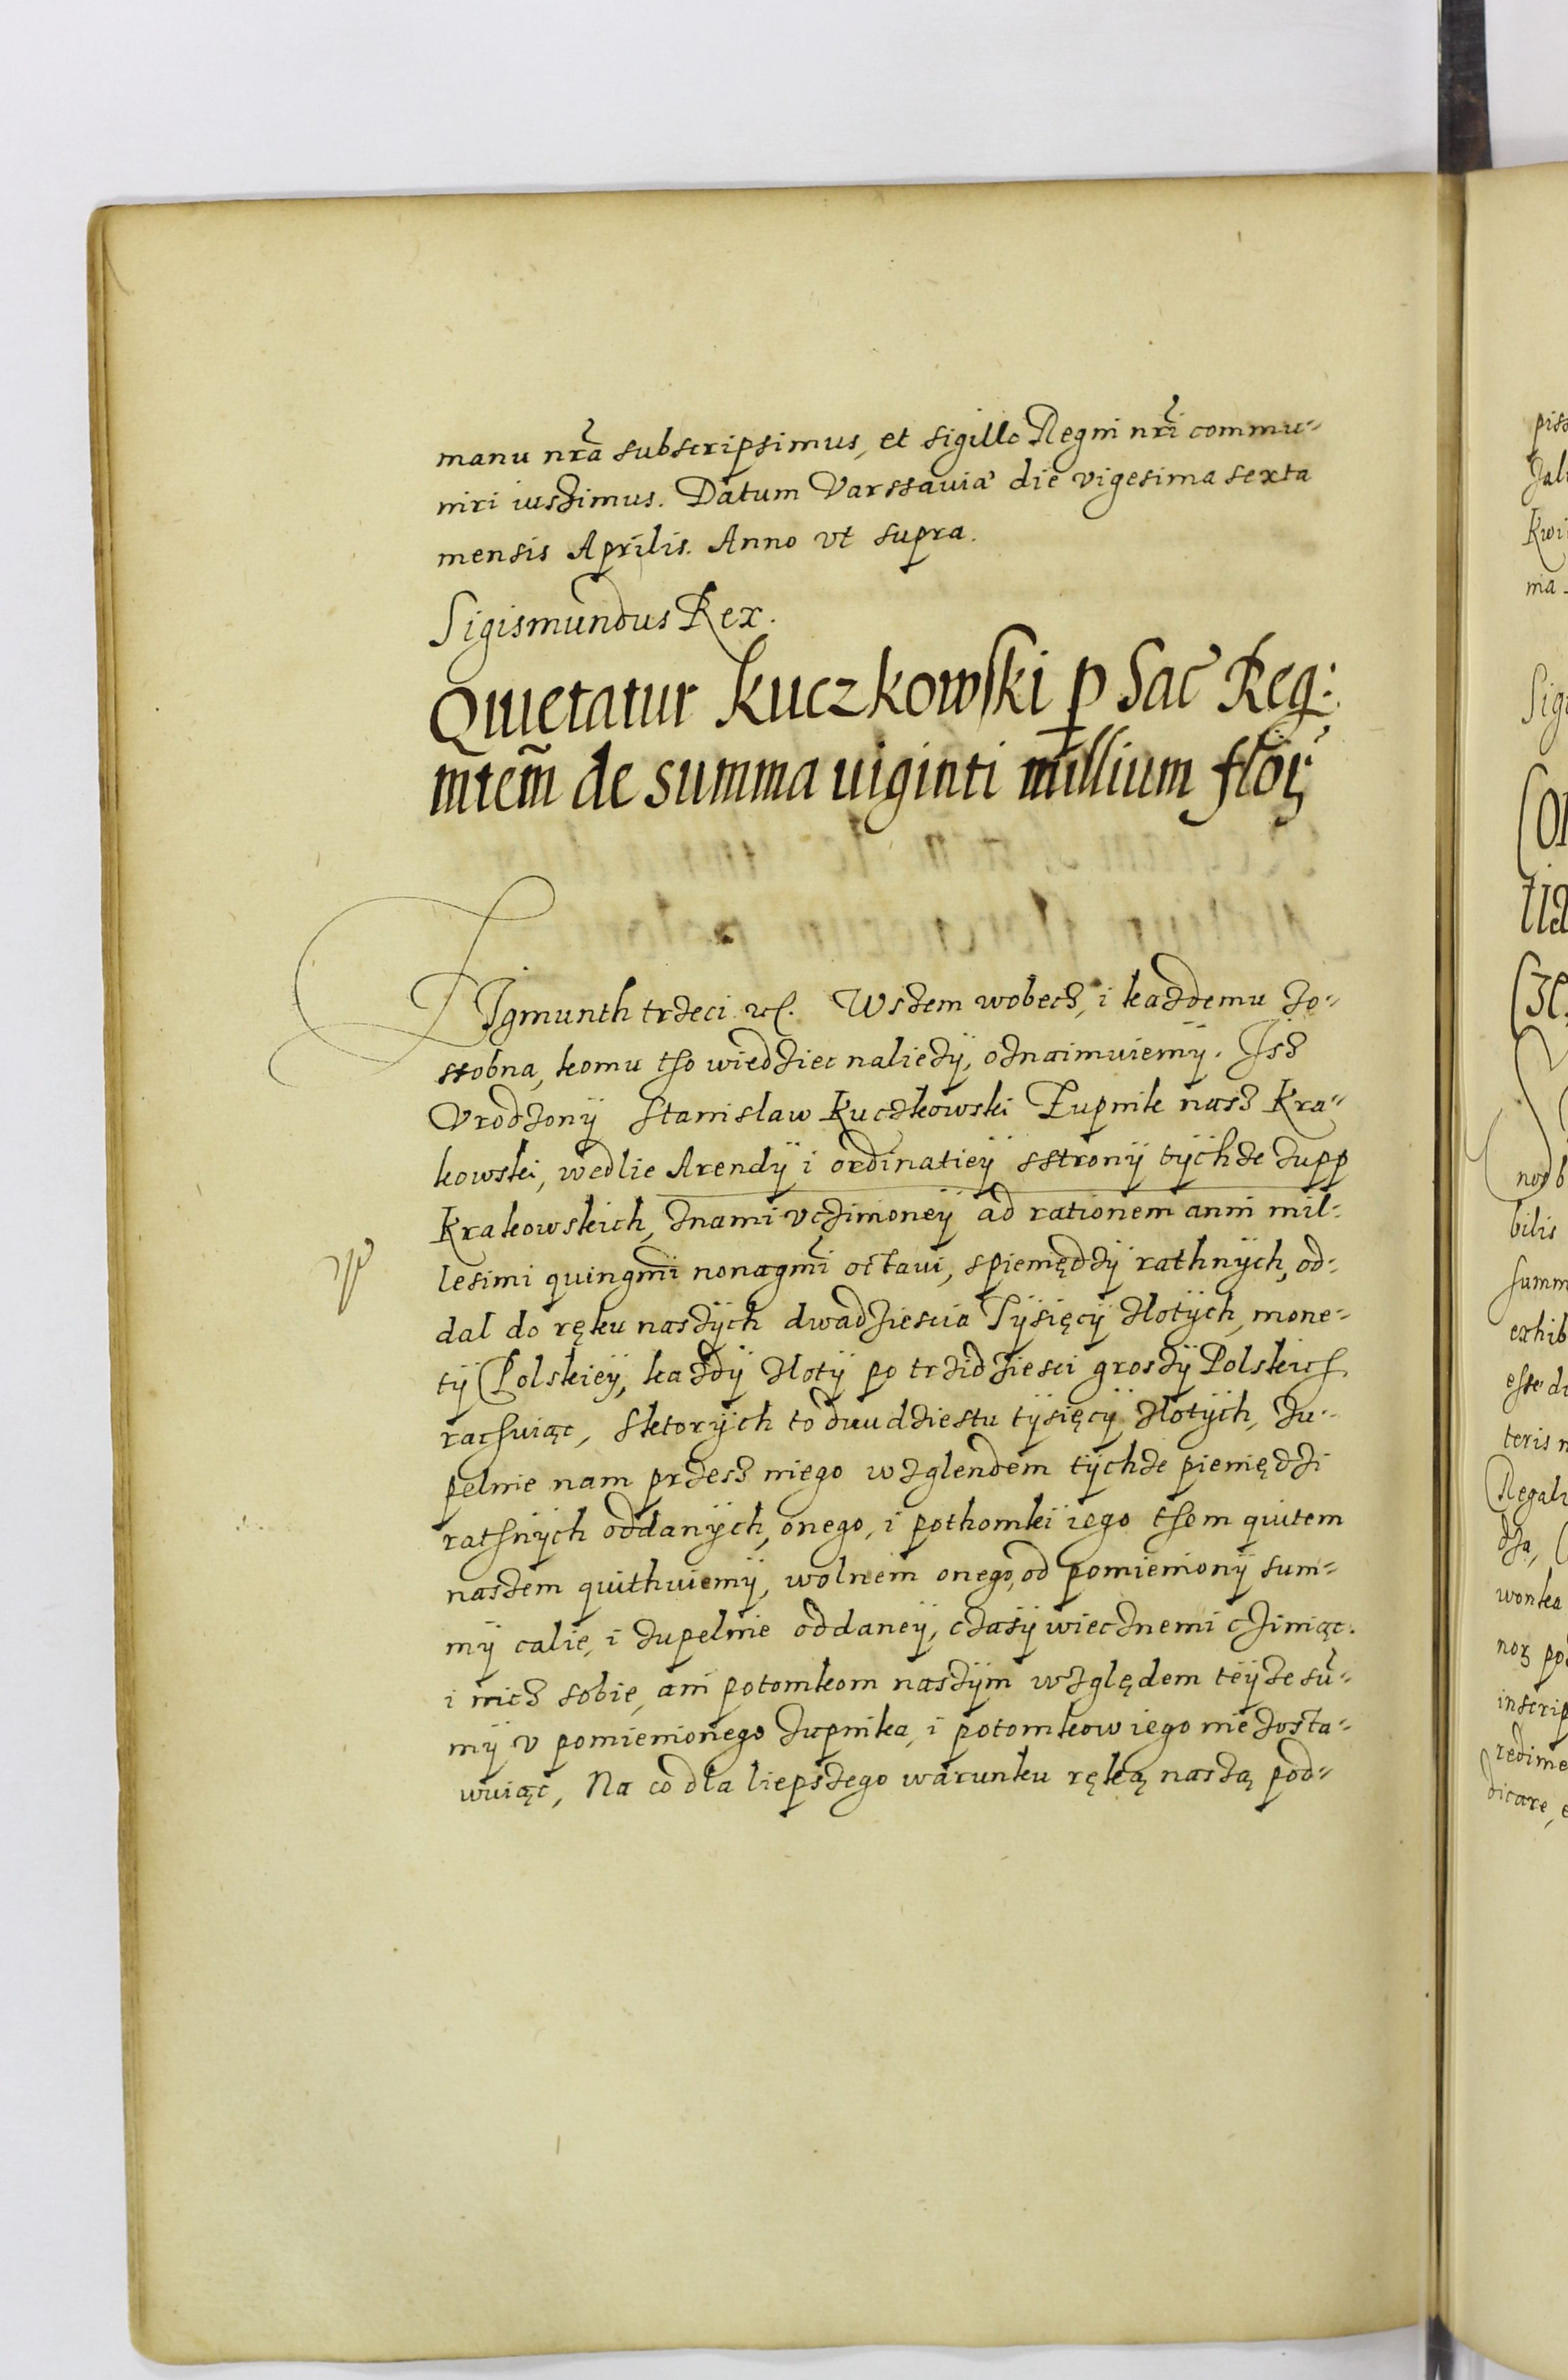 manu nrã subscripsimus, et sigillo Regni nrĩ commu-
niri iuszimus. Datum Varssaviæ die vigesima sexta
mensis Aprilis. Anno vt supra.
Sigismundus Rex.
Quietatur Kuczkowski p Sac Reg:
mtem̃ de summa uiginti millium flor
Zigmunth trzeci etc. Wszem wobecz, i kazdemu zo-
ssobna, komu tho wiedziec naliezÿ, oznaimuiemÿ. Isz
Vrodzonÿ Stanislaw Kuczkowski Zupnik nasz Kra-
kowski, wedlie Arendÿ i ordinatieÿ sstronÿ tÿchze zupp
Krakowskich, znami vczinioneÿ ad rationem anni mil-
lesimi quingmĩ nonagmĩ octaui, spieniędzÿ rathnÿch, od-
dal do ręku naszÿch dwadziescia Tÿsięcÿ zlotÿch, mone-
tÿ Polskieÿ, kazdÿ zlotÿ po trzidziesci groszÿ Polskich
rachuiąc, Sktorÿch to dwudziestu tÿsięcÿ zlotÿch, zu-
pelnie nam przesz niego wzglendem tÿchze pieniędzi
rathnÿch oddanÿch, onego, i pothomki iego them quitem
naszem quithuiemÿ, wolnem onego, od pomienionÿ sum-
mÿ calie, i zupelnie oddaneÿ, czasÿ wiecznemi cziniąc.
i nicz sobie, ani potomkom naszÿm względem teÿze sũ-
mÿ v pomienionego zupnika, i potomkow iego nie zosta-
wuiąc, Na co dla liepszego warunku ręką naszą pod-
pis
zal
Kwi
nia
Sig
Con
tia
sze
nor b
bilis
summ
exhib
esse d
teris n
Regali
dza,
wonka
nor
inscrip
redime
dicare, e